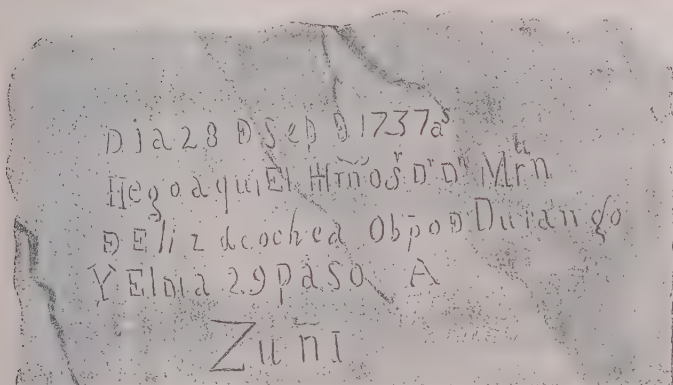 Dia 28 D Sep D 1737 aˢ
llegó aqui El Illmo Sʳ Dʳ Dⁿ Mrⁿ
D Elizacochea Obpo D Durango
Y El Dia 29 paso A
Zuñi